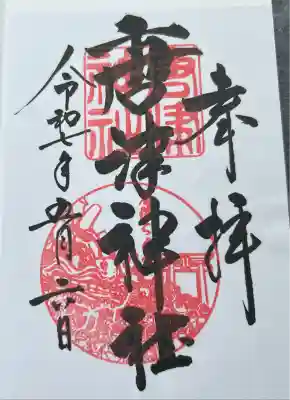 奉拝
唐津神社
令和七年五月二六日